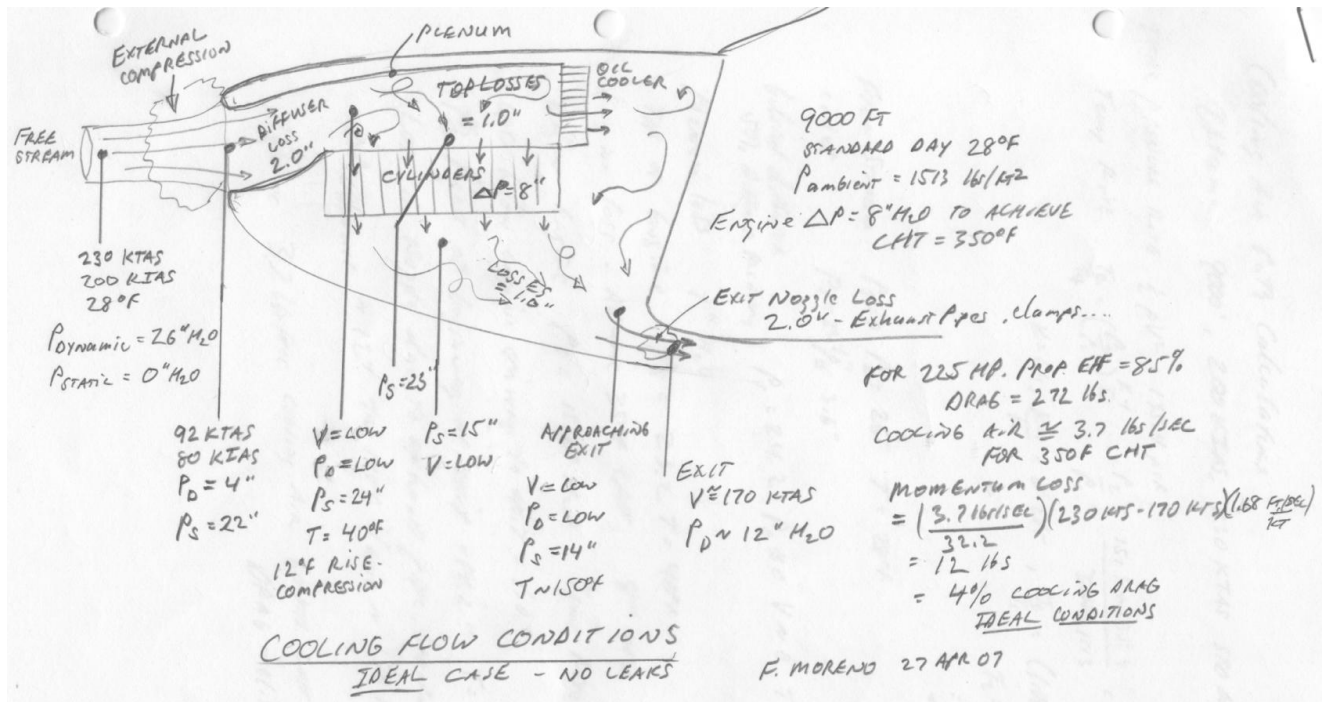 PLENUM
EXTERNAL
COMPRESSION
TOP LOSSES
= 1.0"
OIL
COOLER
FREE
STREAM
DIFFUSER
LOSS
2.0"
CYLINDERS
ΔP=8"
LOSSES
1.0"
EXIT NOZZLE LOSS
2.0" - EXHAUST PIPES, clamps....
230 KTAS
200 KIAS
28°F
PDYNAMIC = 26"H2O
PSTATIC = 0"H2O
92 KTAS
80 KIAS
PD = 4"
PS = 22"
V = LOW
PD = LOW
PS = 24"
T = 40°F
12°F RISE-
COMPRESSION
PS = 23"
PS = 15"
V = LOW
APPROACHING
EXIT
V = LOW
PD = LOW
PS = 14"
T ~ 150°F
EXIT
V ≅ 170 KTAS
PD ~ 12" H2O
9000 FT
STANDARD DAY 28°F
Pambient = 1513 lbs/FT2
ENGINE ΔP = 8"H2O TO ACHIEVE
CHT = 350°F
FOR 225 HP. PROP. EFF = 85%
DRAG = 272 lbs.
COOLING AIR ≅ 3.7 lbs/SEC
FOR 350F CHT
MOMENTUM LOSS
= (3.7 lbm/SEC / 32.2) (230 KTS - 170 KTS) (1.68 FT/SEC / KT)
= 12 lbs
= 4% COOLING DRAG
IDEAL CONDITIONS
COOLING FLOW CONDITIONS
IDEAL CASE - NO LEAKS
F. MORENO 27 APR 07